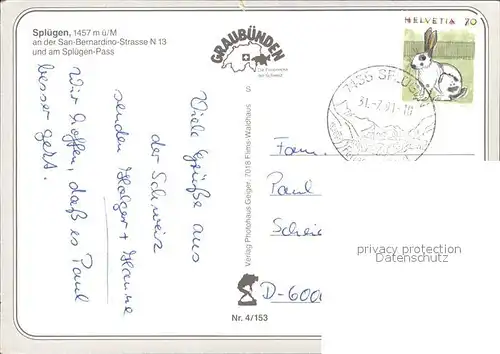 Splügen, 1457 m ü/M
an der San-Bernardino-Strasse N 13
und am Splügen-Pass
GRAUBÜNDEN
Die Ferienecke
der Schweiz
HELVETIA 70
7435 SPLÜGEN
31.-7.91-18
S
Verlag Photohaus Geiger, 7018 Flims-Waldhaus
Nr. 4/153
Viele Grüße aus
der Schweiz
senden Holger + Hanne
Wir hoffen, daß es Paul
besser geht.
Fam.
Paul
D-600
privacy protection
Datenschutz